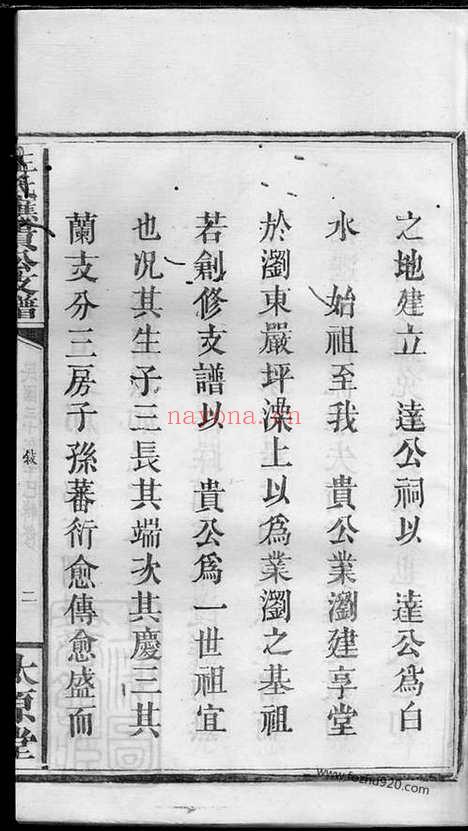 之地建立 達公祠以 達公為白
水 始祖至我 貴公業瀏建享堂
於瀏東嚴坪澡上以為業瀏之基祖
若創修支譜以 貴公為一世祖宜
也况其生子三長其端次其慶三其
蘭支分三房子孫蕃衍愈傳愈盛而
公支譜
敘
二
太原堂
nayona.cn
www.fozhu920.com